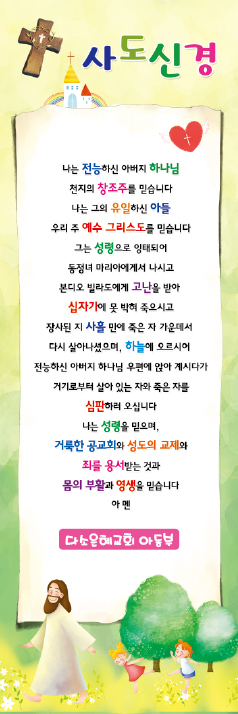 사도신경
나는 전능하신 아버지 하나님
천지의 창조주를 믿습니다
나는 그의 유일하신 아들
우리 주 예수 그리스도를 믿습니다
그는 성령으로 잉태되어
동정녀 마리아에게서 나시고
본디오 빌라도에게 고난을 받아
십자가에 못 박혀 죽으시고
장사된 지 사흘 만에 죽은 자 가운데서
다시 살아나셨으며, 하늘에 오르시어
전능하신 아버지 하나님 우편에 앉아 계시다가
거기로부터 살아 있는 자와 죽은 자를
심판하러 오십니다
나는 성령을 믿으며,
거룩한 공교회와 성도의 교제와
죄를 용서받는 것과
몸의 부활과 영생을 믿습니다
아멘
다소은혜교회 아동부